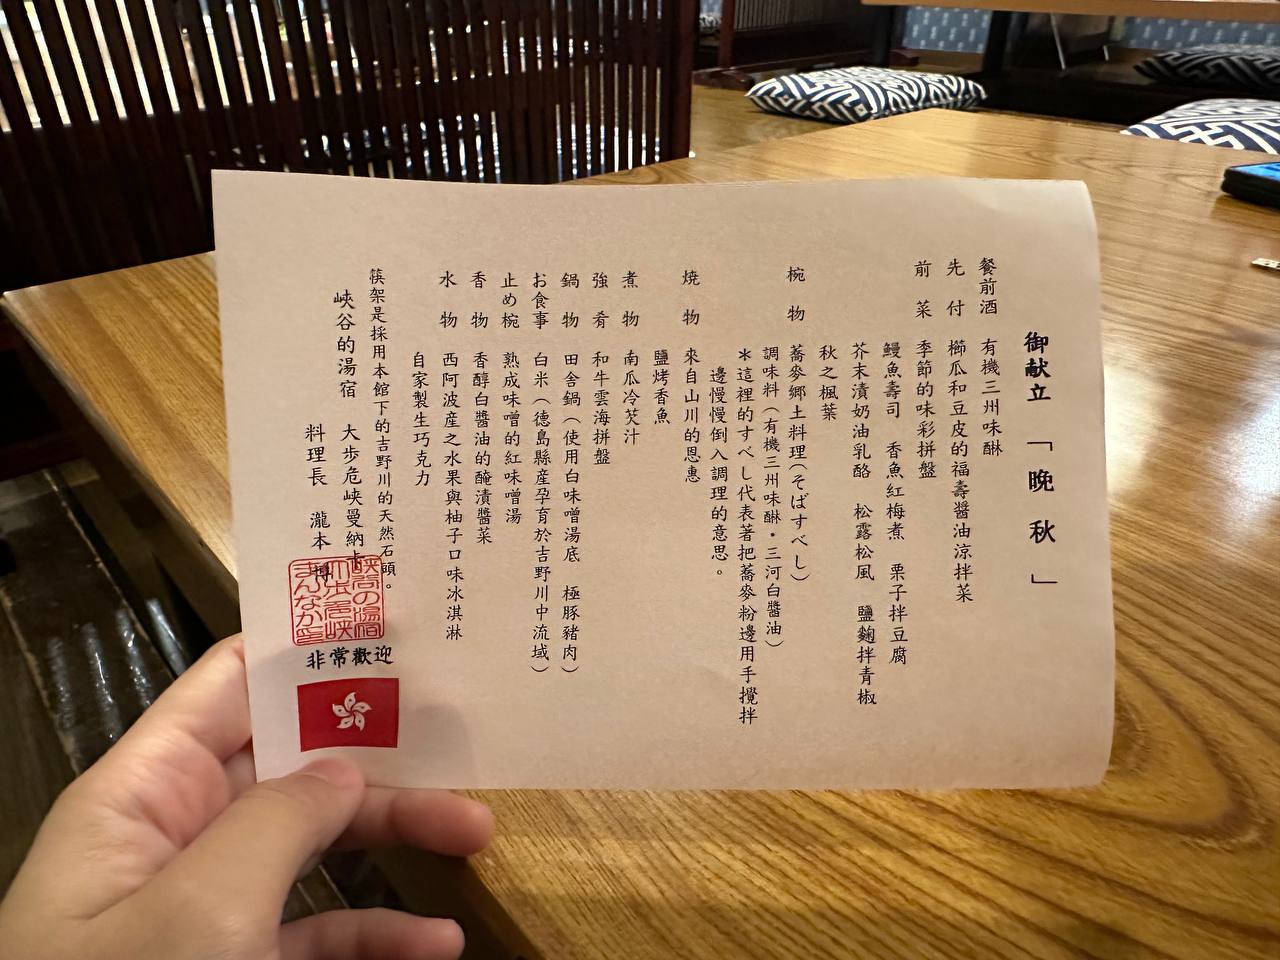 御献立 「晩秋」
餐前酒 有機三州味醂
先付 櫛瓜和豆皮的福壽醬油涼拌菜
前菜 季節的味彩拼盤
鰻魚壽司 香魚紅梅煮 栗子拌豆腐
芥末漬奶油乳酪 松露松風 鹽麴拌青椒
秋之楓葉
椀物 蕎麥鄉土料理(そばすべし)
調味料(有機三州味醂・三河白醬油)
＊這裡的すべし代表著把蕎麥粉邊用手攪拌
邊慢慢倒入調理的意思。
焼物 來自山川的恩惠
鹽烤香魚
煮物 南瓜冷芡汁
強肴 和牛雲海拼盤
鍋物 田舍鍋(使用白味噌湯底 極豚豬肉)
お食事 白米(德島縣産孕育於吉野川中流域)
止め椀 熟成味噌的紅味噌湯
香物 香醇白醬油的醃漬醬菜
水物 西阿波産之水果與柚子口味冰淇淋
自家製生巧克力
筷架是採用本館下的吉野川的天然石頭。
峽谷的湯宿 大步危峽曼納卡
料理長 瀧本 博
峡谷の湯宿
大歩危峡
まんなか
非常歡迎